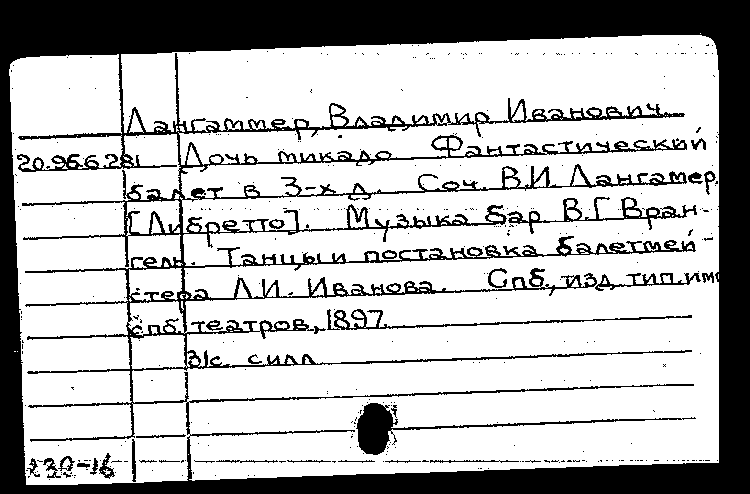 Лангаммер, Владимир Иванович.
20.96.6.281 Дочь микадо Фантастический
балет в 3-х д. Соч. В.И. Лангамер.
[Либретто]. Музыка бар. В.Г. Вран-
гель. Танцы и постановка балетмей-
стера Л.И. Иванова. Спб., изд. тип. имп
спб. театров, 1897.
31с. с илл
230-16